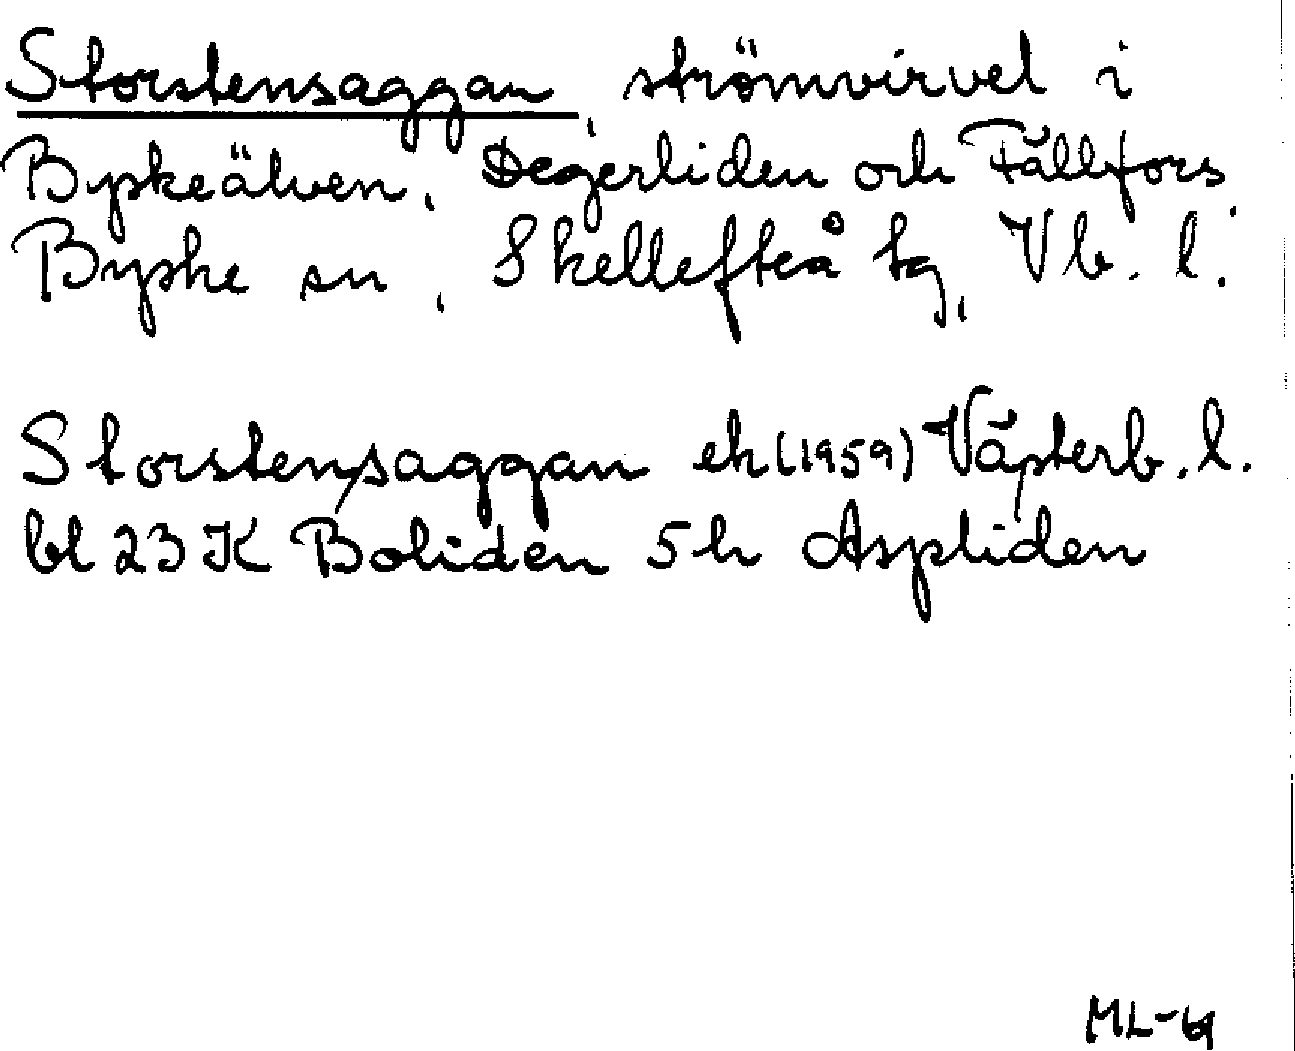 Storstensaggan, strömvirvel i
Byskeälven, Degerliden och Fällfors
Byske sn, Skellefteå tg, Vb. l.
Storstensaggan ek (1959) Västerb. l.
bl 23 K Boliden 5 h Aspliden
ML-69